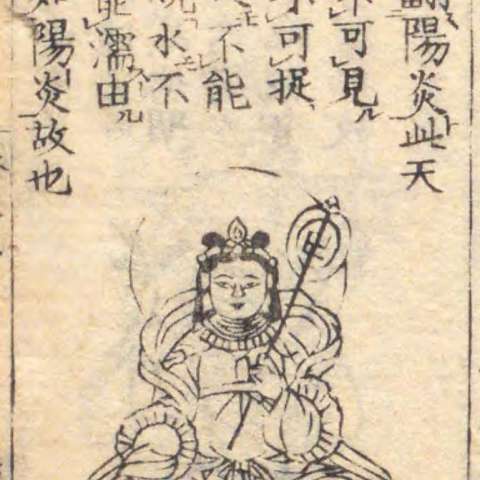 翻陽炎此天
可見ル
可捉
不能
水不
能濡由ル
如陽炎故也